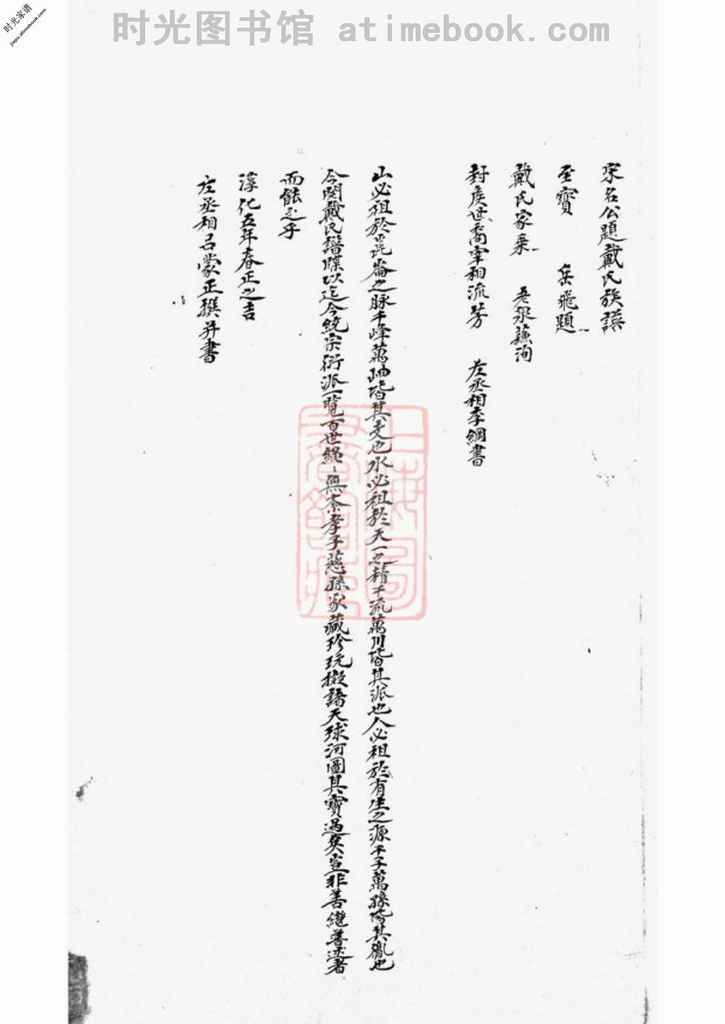 时光图书馆 atimebook.com
时光家谱
宋名公題戴氏族譜
至寶 岳飛題
戴氏家乘 老泉蘇洵
封侯世裔宰相流芳 左丞相李綱書
山必祖於崑崙之脉千峰萬岫皆其支也水必祖於天一之精千流萬川皆其派也人必祖於有生之源千子萬孫皆其胤也
今閱戴氏譜牒以迄今統宗衍派一覽百世綿〻無紊孝子慈孫家藏珍玩擬諸天球河圖其寶過矣豈非善繼善述者
而能之乎
淳化五年春正之吉
左丞相呂蒙正撰并書
上海圖書館藏